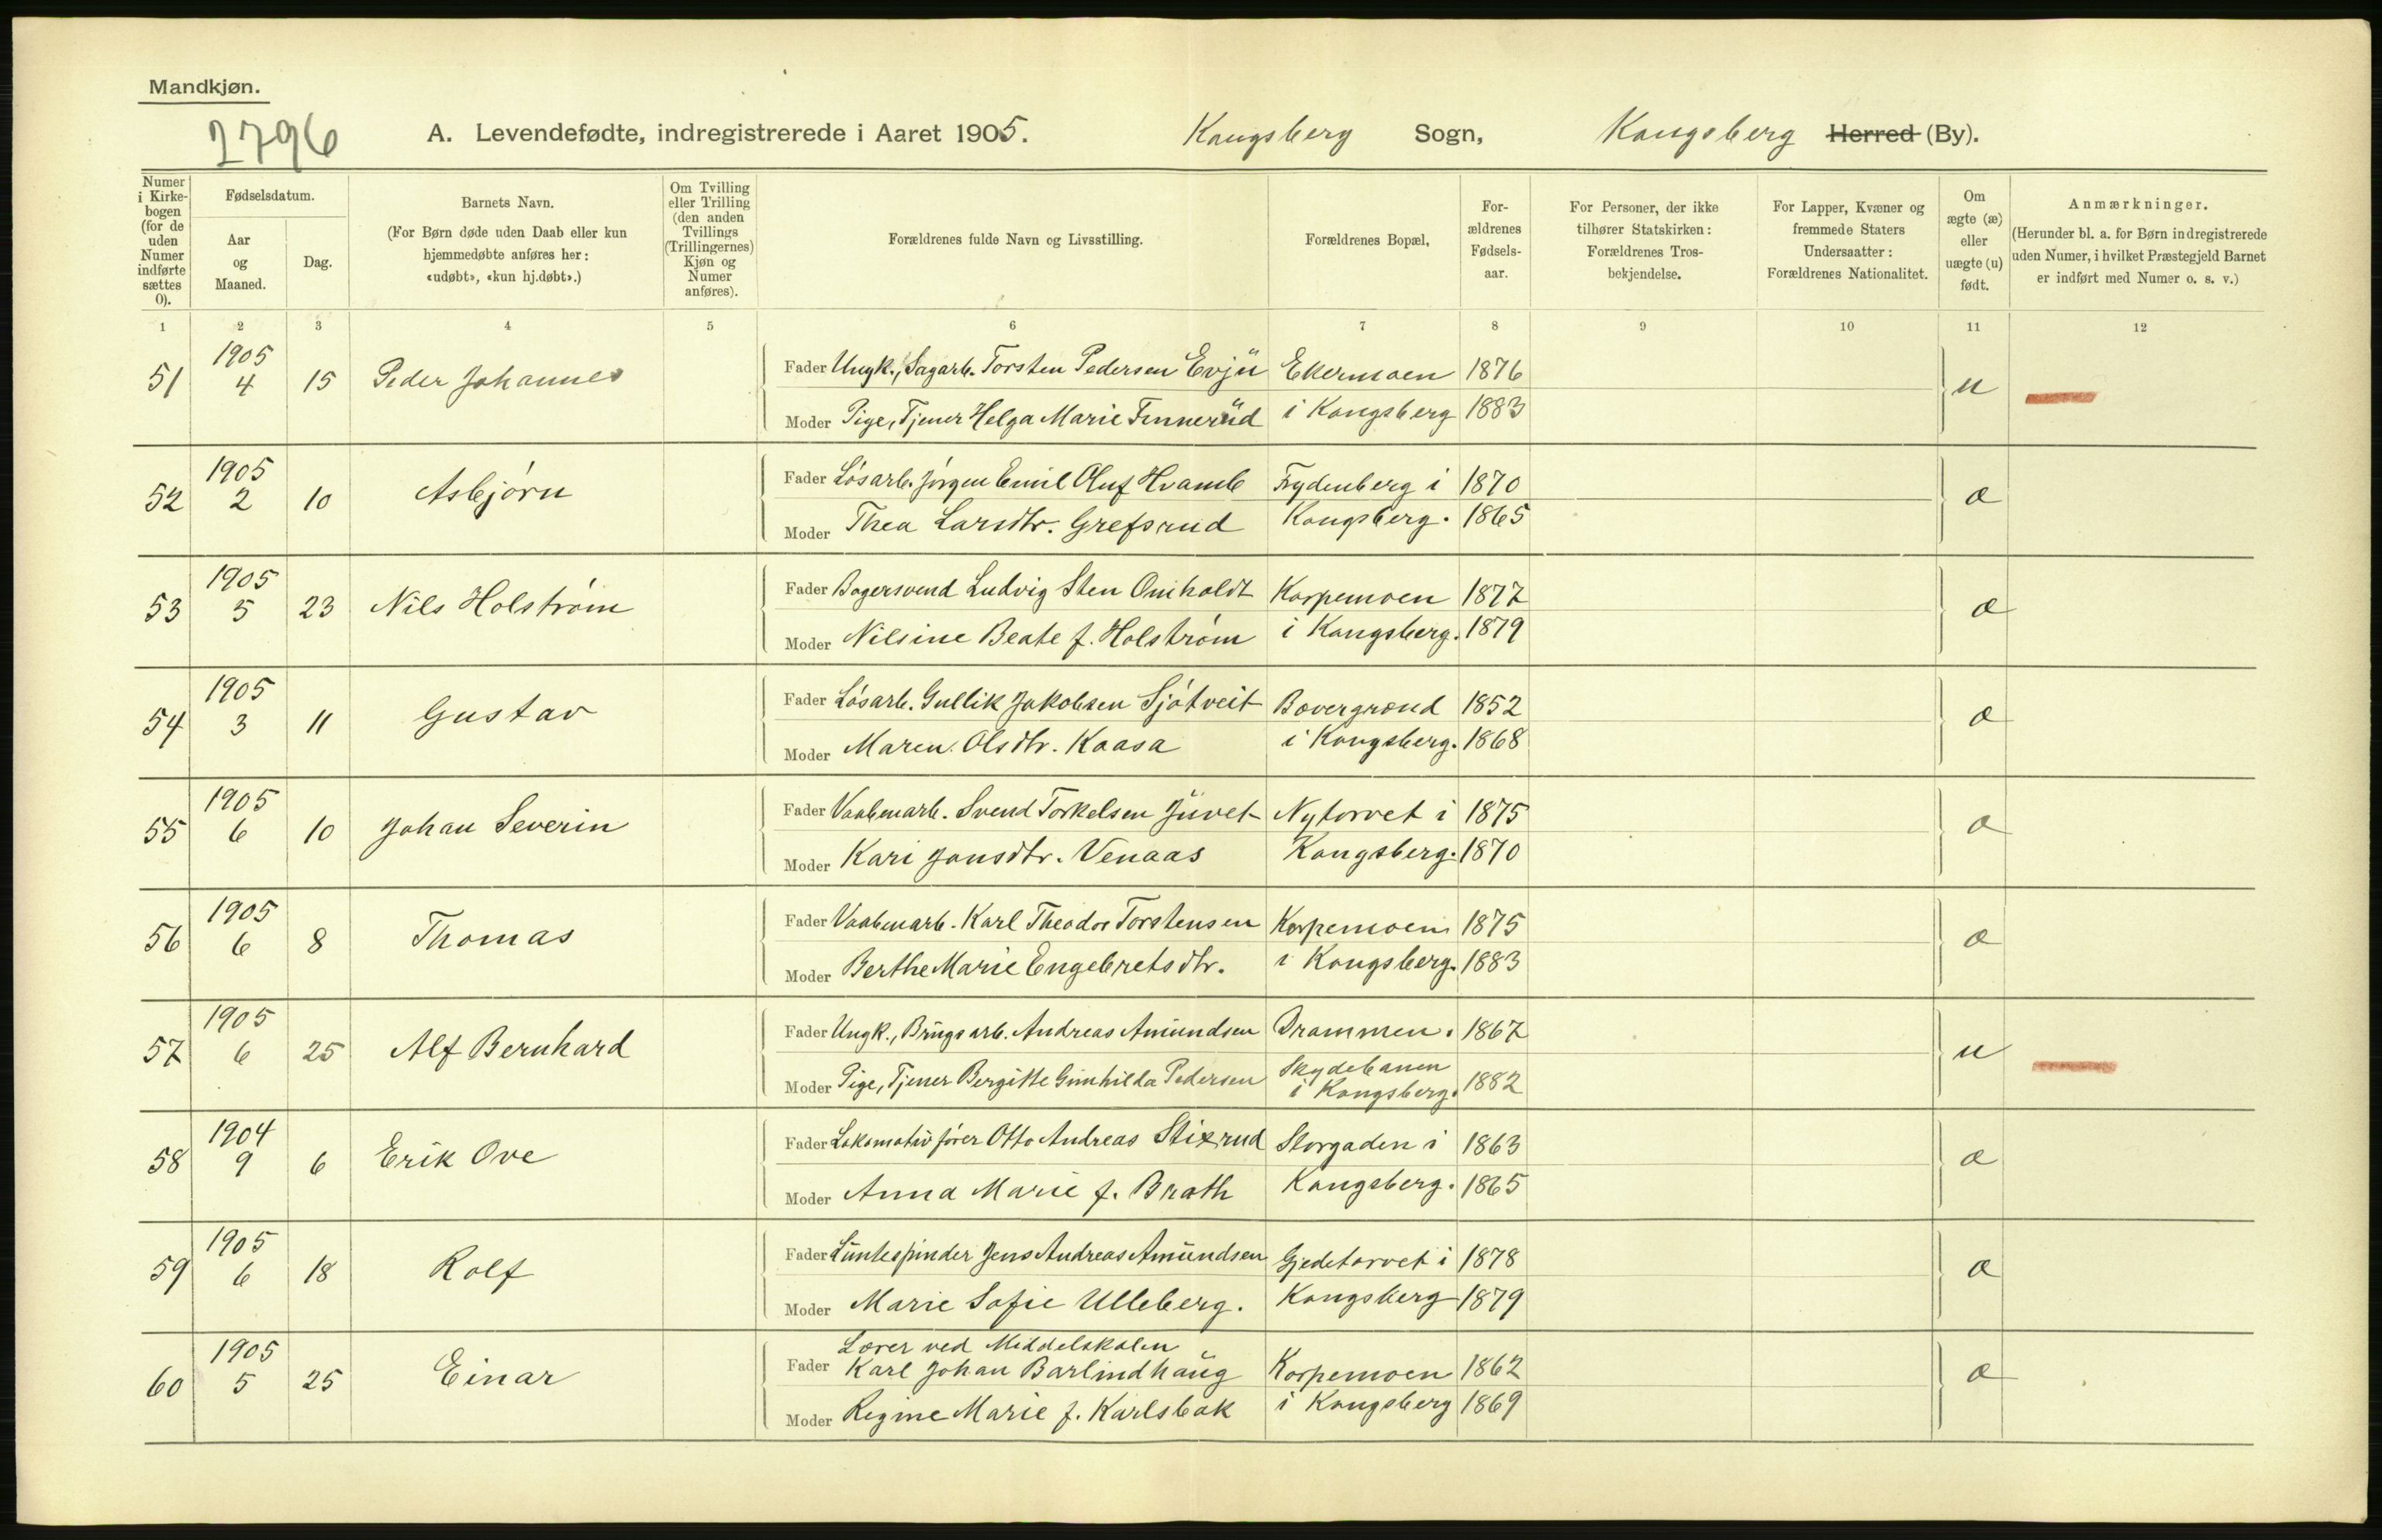 Mandkjøn.
2796
A. Levendefødte, indregistrerede i Aaret 1905. Kongsberg Sogn, Kongsberg Herred (By).
Numer i Kirkebogen (for de uden Numer indførte sættes 0).
Fødselsdatum.
Aar og Maaned.
Dag.
Barnets Navn.
(For Børn døde uden Daab eller kun hjemmedøbte anføres her: «udøbt», «kun hj.døbt».)
Om Tvilling eller Trilling (den anden Tvillings (Trillingernes) Kjøn og Numer anføres).
Forældrenes fulde Navn og Livsstilling.
Forældrenes Bopæl,
For-ældrenes Fødsels-aar.
For Personer, der ikke tilhører Statskirken: Forældrenes Tros-bekjendelse.
For Lapper, Kvæner og fremmede Staters Undersaatter: Forældrenes Nationalitet.
Om ægte (æ) eller uægte (u) født.
Anmærkninger.
(Herunder bl. a. for Børn indregistrerede uden Numer, i hvilket Præstegjeld Barnet er indført med Numer o. s. v.)
1 2 3 4 5 6 7 8 9 10 11 12
51 1905 4 15 Peder Johannes Fader Ungk., Sagarb. Torsten Pedersen Evju Ekermoen 1876 u
Moder Pige, Tjener Helga Marie Finnerud i Kongsberg 1883
52 1905 2 10 Asbjørn Fader Løsarb. Jørgen Emil Oluf Hvamb Frydenberg i 1870 æ
Moder Thea Larsdtr. Grefsrud Kongsberg. 1865
53 1905 5 23 Nils Holstrøm Fader Bagersvend Ludvig Sten Omholdt Korpemoen 1877 æ
Moder Nilsine Beate f. Holstrøm i Kongsberg. 1879
54 1905 3 11 Gustav Fader Løsarb. Gullik Jakobsen Sjøtveit Bævergrænd 1852 æ
Moder Maren Olsdtr. Kaasa i Kongsberg. 1868
55 1905 6 10 Johan Severin Fader Vaabenarb. Svend Torkelsen Juvet Nytorvet i 1875 æ
Moder Kari Jonsdtr. Venaas Kongsberg. 1870
56 1905 6 8 Thomas Fader Vaabenarb. Karl Theodor Torstensen Korpemoen 1875 æ
Moder Berthe Marie Engebretsdtr. i Kongsberg. 1883
57 1905 6 25 Alf Bernhard Fader Ungk., Brugsarb. Andreas Amundsen Drammen. 1867 u
Moder Pige, Tjener Bergitte Gunhilda Pedersen Skydebanen i Kongsberg. 1882
58 1904 9 6 Erik Ove Fader Lokomotivfører Otto Andreas Stixrud Storgaden i 1863 æ
Moder Anna Marie f. Brath Kongsberg. 1865
59 1905 6 18 Rolf Fader Luntespinder Jens Andreas Amundsen Gjedetorvet i 1878 æ
Moder Marie Sofie Ulleberg. Kongsberg 1879
60 1905 5 25 Einar Fader Lærer ved Middelskolen
Karl Johan Barlindhaug Korpemoen 1862 æ
Moder Regine Marie f. Karlsbak i Kongsberg 1869